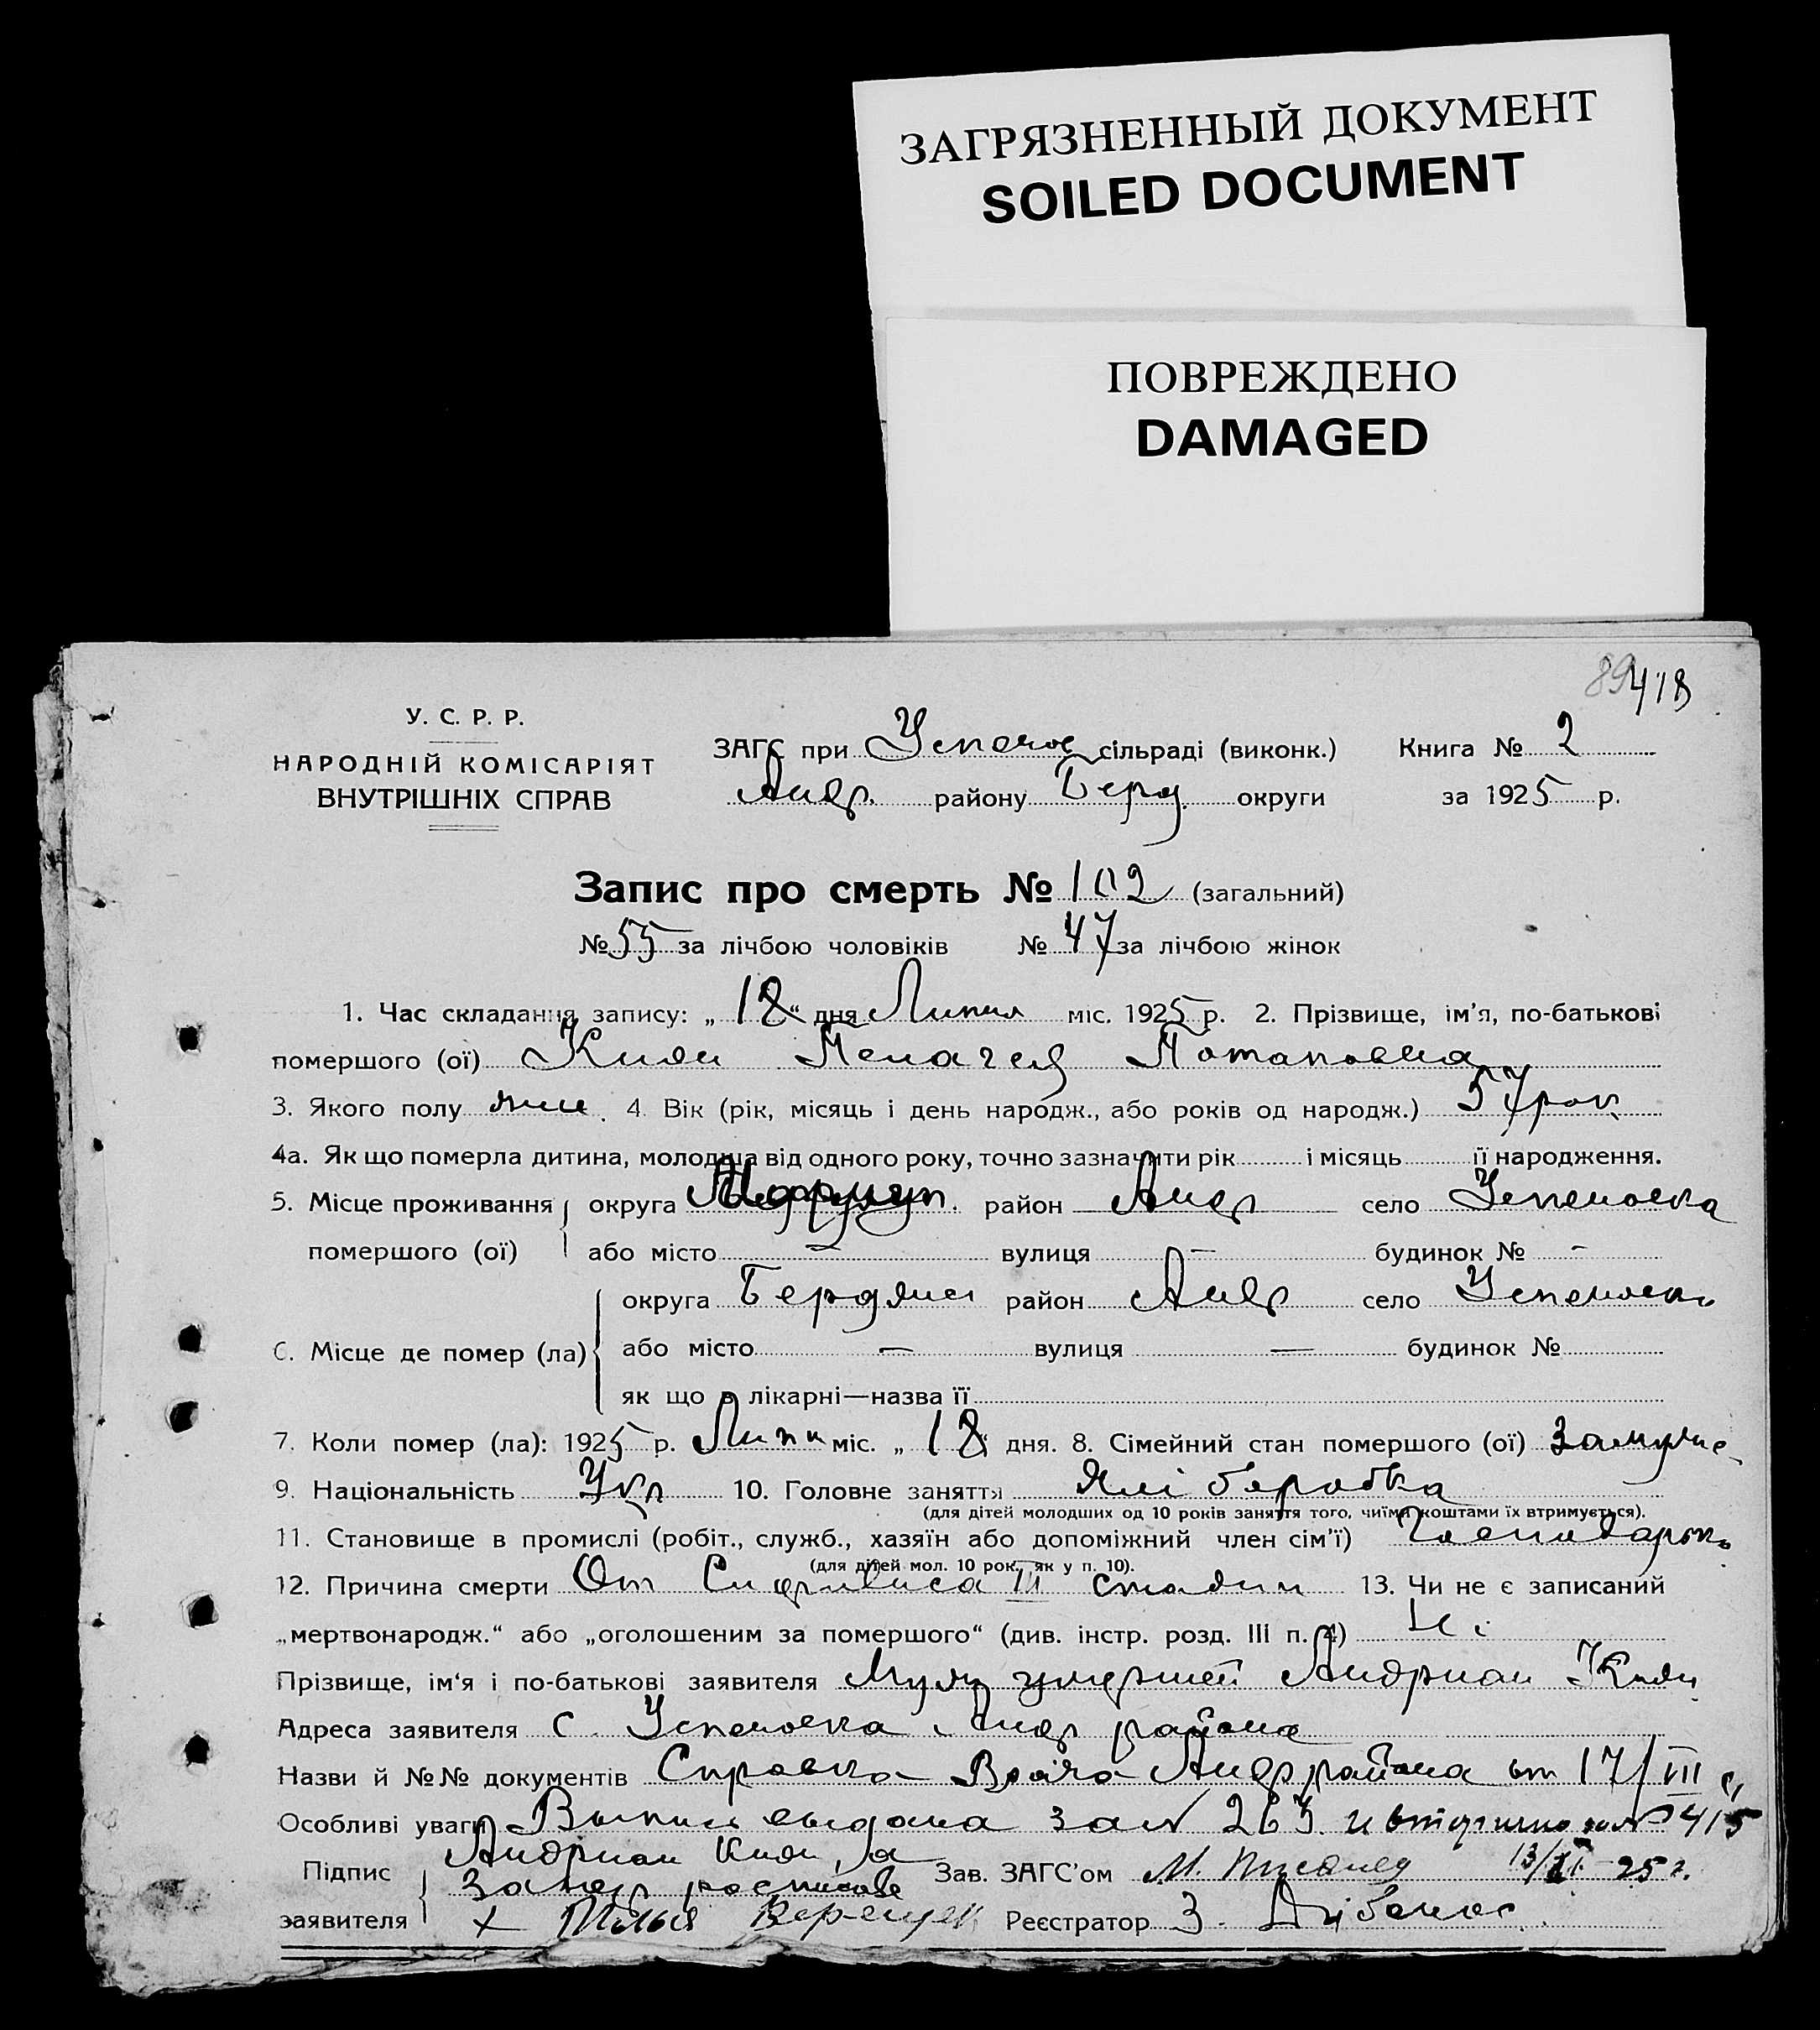 ЗАГРЯЗНЕННЫЙ ДОКУМЕНТ
SOILED DOCUMENT
ПОВРЕЖДЕНО
DAMAGED
89 418
У. С. Р. Р.
НАРОДНІЙ КОМІСАРІЯТ
ВНУТРІШНІХ СПРАВ
ЗАГС при Успенов сільраді (виконк.) Книга № 2
Андр. району Берд. округи за 1925 р.
Запис про смерть № 102 (загальний)
№ 55 за лічбою чоловіків № 47 за лічбою жінок
1. Час складання запису: „18“ дня Липня міс. 1925 р. 2. Прізвище, ім'я, по-батькові
помершого (ої) Киян Пелагея Потаповна
3. Якого полу жін. 4. Вік (рік, місяць і день народж., або років од народж.) 57 рок
4а. Як що померла дитина, молодша від одного року, точно зазначити рік і місяць її народження.
5. Місце проживання округа район Андр село Успеновка
помершого (ої) або місто — вулиця — будинок № -
округа Бердянс район Андр село Успеновка
6. Місце де помер (ла) або місто — вулиця — будинок №
як що в лікарні—назва її
7. Коли помер (ла): 1925 р. Липн міс. „18“ дня. 8. Сімейний стан помершого (ої) Замужн
9. Національність Укр 10. Головне заняття Хліборобка
(для дітей молодших од 10 років заняття того, чиїми коштами їх втримується).
11. Становище в промислі (робіт., служб., хазяїн або допоміжний член сім'ї)
(для дітей мол. 10 рок., як у п. 10).
12. Причина смерти От Сифилиса III стадии 13. Чи не є записаний
„мертвонародж.“ або „оголошеним за помершого“ (див. інстр. розд. III п. 4) Ні
Прізвище, ім'я і по-батькові заявителя Муж умершей Андриан Киян
Адреса заявителя с. Успеновка Андр района
Назви й №№ документів Справка Врача Андр района от 17/VII
Особливі уваги Выпись выдана за № 263 и вторично за № 415
Підпис Андриан Киян, а
заявителя за негр росписався
+ Илья Верещак
Зав. ЗАГС'ом М. 13/XI-25 г.
Реєстратор З.